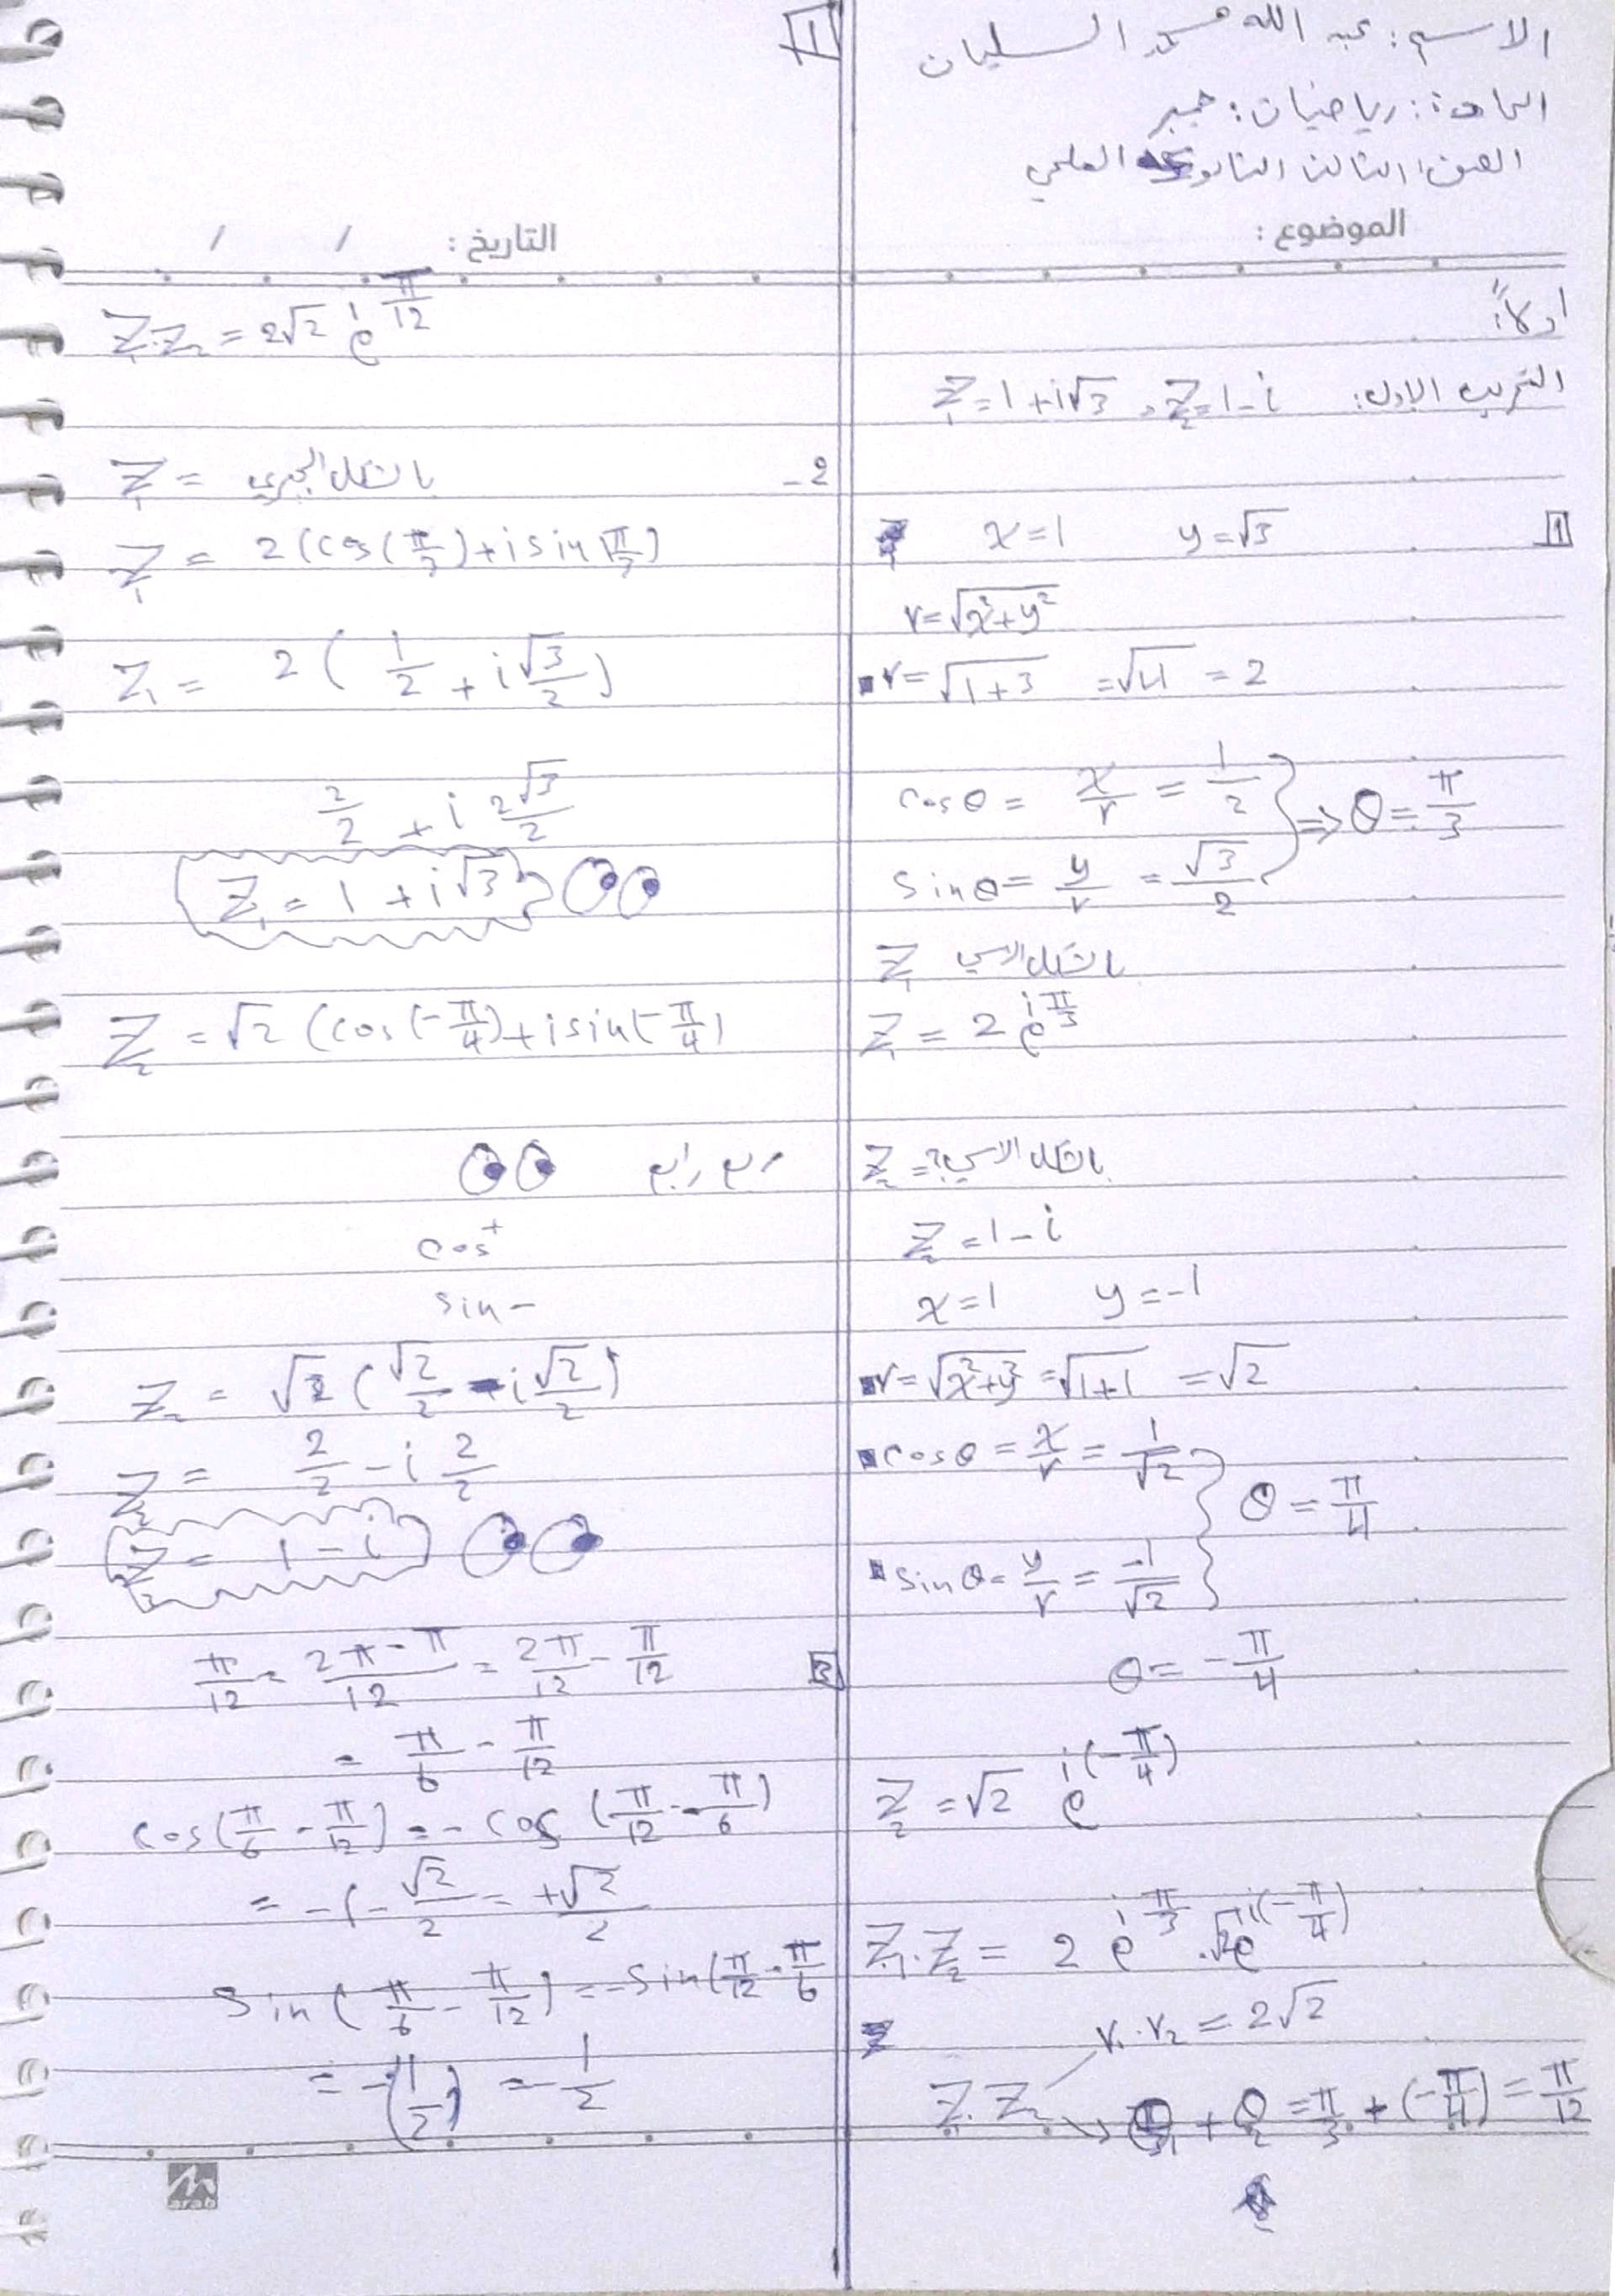 الاسم: عبد الله محمد السليمان
المادة: رياضيات: جبر
الصف: الثالث الثانوي العلمي
الموضوع:
أولاً:
التمرين الاول: Z₁=1+i√3 , Z₂=1-i
1
x=1 y=√3
r=√x²+y²
r=√1+3 =√4 = 2
cosθ = x/r = 1/2
sinθ = y/r = √3/2
} => θ = π/3
Z₁ بالشكل الاسي
Z₁ = 2 e^iπ/3
Z₂ = بالشكل الاسي?
Z₂ = 1-i
x=1 y=-1
r=√x²+y² =√1+1 =√2
cosθ = x/r = 1/√2
sinθ = y/r = -1/√2
} θ = π/4
θ = -π/4
Z₂ = √2 e^i(-π/4)
Z₁.Z₂ = 2 e^iπ/3 .√2e^i(-π/4)
r₁.r₂ = 2√2
Z₁.Z₂ → θ₁ + θ₂ = π/3 + (-π/4) = π/12
1
التاريخ: / /
Z₁.Z₂ = 2√2 e^iπ/12
2-
Z₁ = بالشكل الجبري
Z₁ = 2(cos(π/3)+i sin π/3)
Z₁ = 2 ( 1/2 + i √3/2 )
2/2 + i 2√3/2
Z₁ = 1 + i√3
Z₂ = √2 (cos(-π/4)+i sin(-π/4)
ربع رابع
cos +
sin -
Z₂ = √2 ( √2/2 - i √2/2 )
Z₂ = 2/2 - i 2/2
Z₂ = 1 - i
3
π/12 = 2π-π/12 = 2π/12 - π/12
= π/6 - π/12
cos(π/6 - π/12) = - cos (π/12 - π/6)
= -(- √2/2 = +√2/2
sin ( π/6 - π/12 ) = -sin(π/12 - π/6
= -(1/2) = -1/2
arab